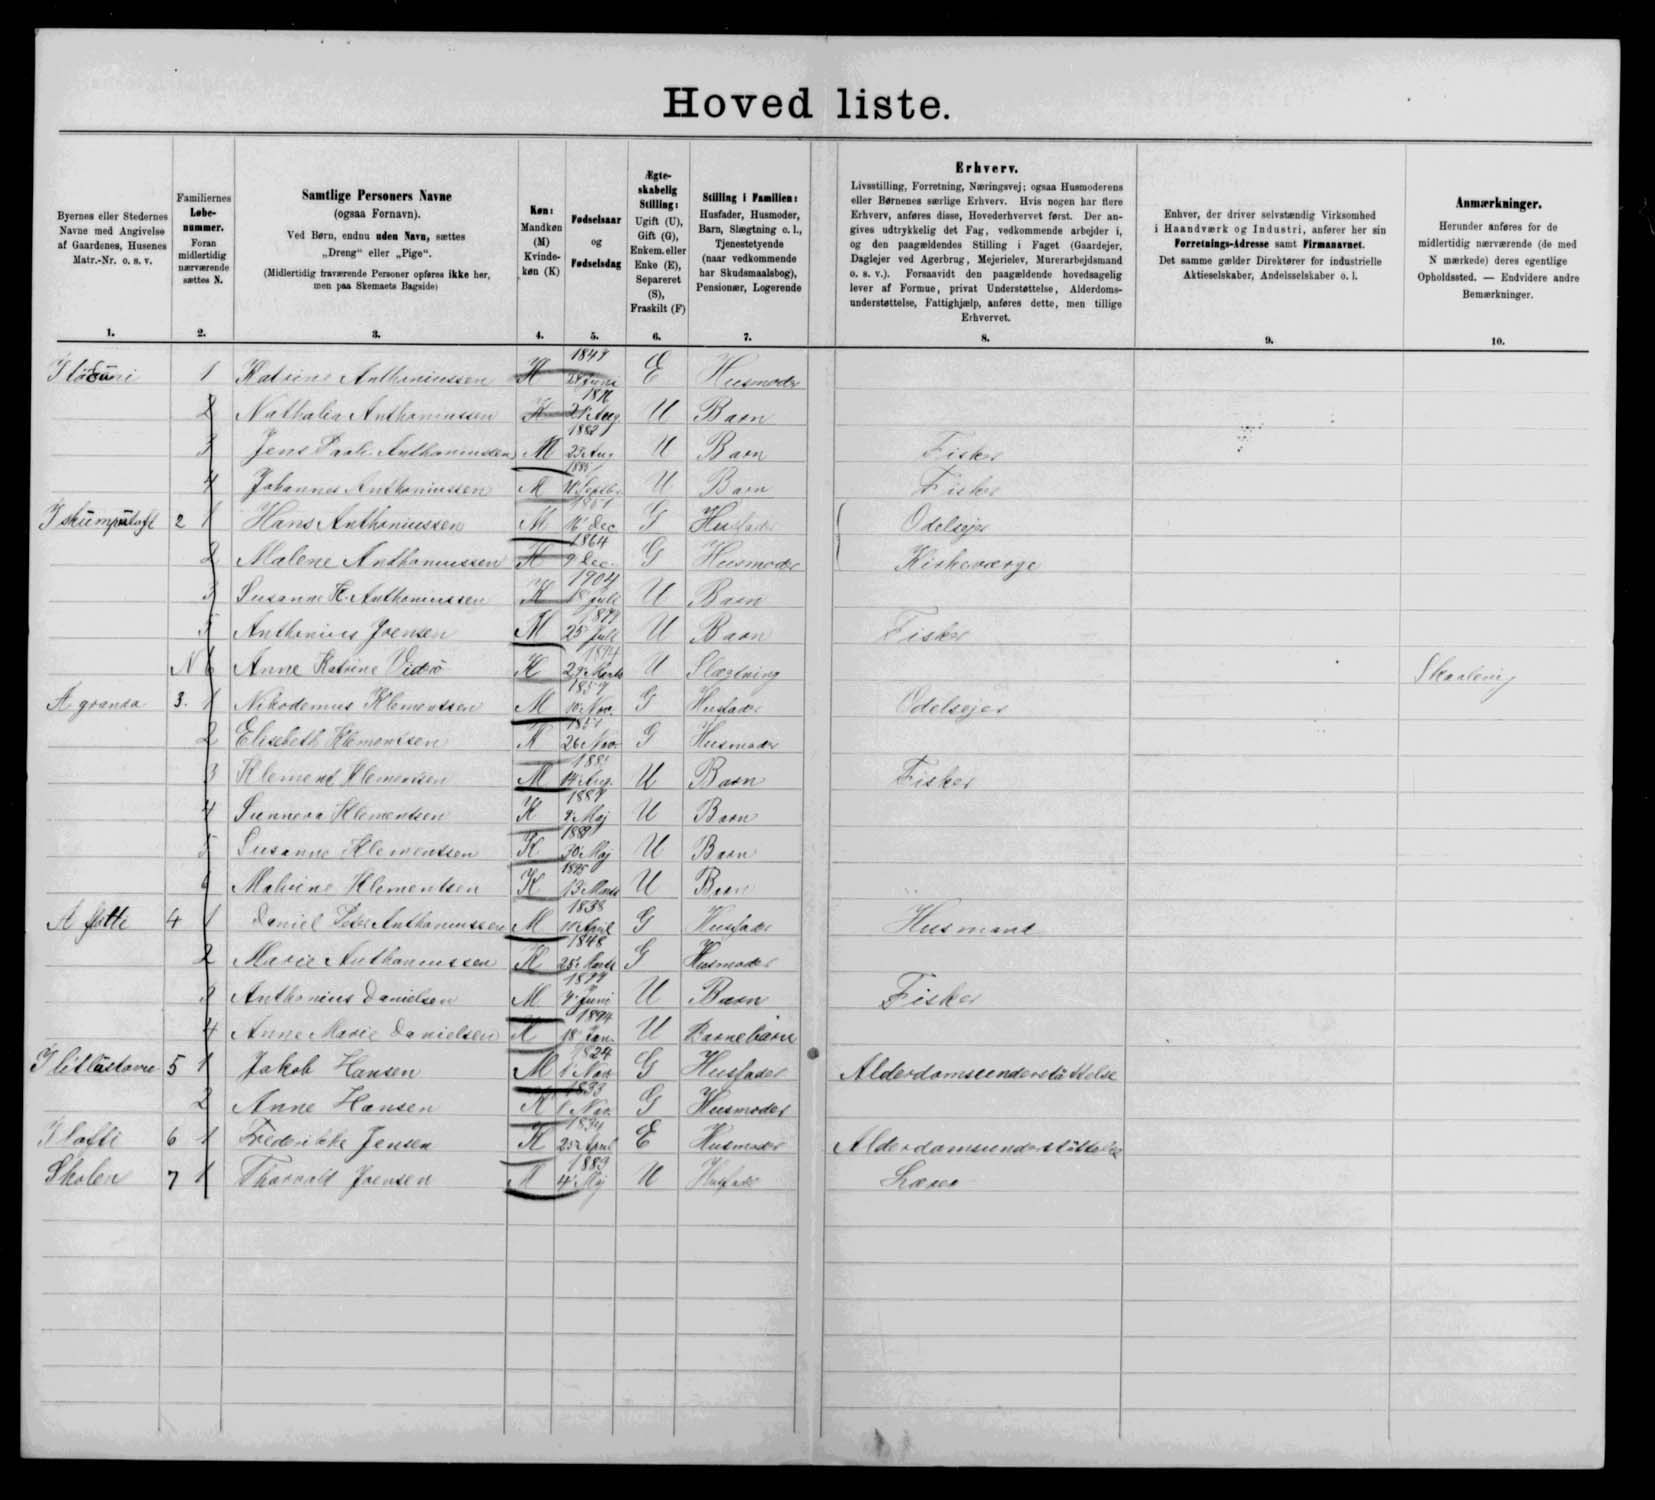 Hoved liste.
Byernes eller Stedernes Navne med Angivelse af Gaardenes, Husenes Matr.-Nr. o. s. v.
Familiernes Løbenummer. Foran midlertidig nærværende sættes N.
Samtlige Personers Navne (ogsaa Fornavn). Ved Børn, endnu uden Navn, sættes „Dreng“ eller „Pige“. (Midlertidig fraværende Personer opføres ikke her, men paa Skemaets Bagside)
Køn: Mandkøn (M) Kvindekøn (K)
Fødselsaar og Fødselsdag
Ægteskabelig Stilling: Ugift (U), Gift (G), Enkem. eller Enke (E), Separeret (S), Fraskilt (F)
Stilling i Familien: Husfader, Husmoder, Barn, Slægtning o. l., Tjenestetyende (naar vedkommende har Skudsmaalsbog), Pensionær, Logerende
Erhverv. Livsstilling, Forretning, Næringsvej; ogsaa Husmoderens eller Børnenes særlige Erhverv. Hvis nogen har flere Erhverv, anføres disse, Hovederhvervet først. Der angives udtrykkelig det Fag, vedkommende arbejder i, og den paagældendes Stilling i Faget (Gaardejer, Daglejer ved Agerbrug, Mejerielev, Murerarbejdsmand o. s. v.). Forsaavidt den paagældende hovedsagelig lever af Formue, privat Understøttelse, Alderdomsunderstøttelse, Fattighjælp, anføres dette, men tillige Erhvervet.
Enhver, der driver selvstændig Virksomhed i Haandværk og Industri, anfører her sin Forretnings-Adresse samt Firmanavnet. Det samme gælder Direktører for industrielle Aktieselskaber, Andelsselskaber o. l.
Anmærkninger. Herunder anføres for de midlertidig nærværende (de med N mærkede) deres egentlige Opholdssted. — Endvidere andre Bemærkninger.
1. 2. 3. 4. 5. 6. 7. 8. 9. 10.
1 Katrine Anthoniussen K Juni E Husmoder
2 Nathalia Anthoniussen K Aug. U Barn
3 Jens Anthoniussen M U Barn Fisker
4 Johannes Anthoniussen M U Barn Fisker
2 1 Hans Anthoniussen M Dec G Husfader Odelsejer
2 Malene Anthoniussen K 1864 9 Dec. G Husmoder Kirkeværge
3 Susanne K. Anthoniussen K 1904 Juli U Barn
5 Anthonius Joensen M 25 Juli U Barn Fisker
N 6 Anne Katrine Viderö K 1894 Marts U Slægtning
A granda 3. 1 Nikodemus Klementsen M Nov. G Husfader Odelsejer
2 Elisebeth Klementsen K 26 Nov G Husmoder
3 Klement Klementsen M Aug. U Barn Fisker
4 Sunneva Klementsen K Maj U Barn
5 Susanne Klementsen K 30 Maj U Barn
6 Malvine Klementsen K 1895 13 Marts U Barn
4 1 Daniel Anthoniussen M 1838 April G Husfader Husmand
2 Marie Anthoniussen K 1848 Marts G Husmoder
3 Anthonius Danielsen M Juni U Barn Fisker
4 Anne Marie Danielsen K 1894 18 Jan. U Barnebarn
5 1 Jakob Hansen M 1824 Nov G Husfader Alderdomsunderstøttelse
2 Anne Hansen K 1833 Nov. G Husmoder
I lofti 6 1 Frederikke Jensen K April E Husmoder Alderdomsunderstøttelse
Skolen 7 1 Thorvald Joensen M 1883 4 Maj U Husfader Lærer